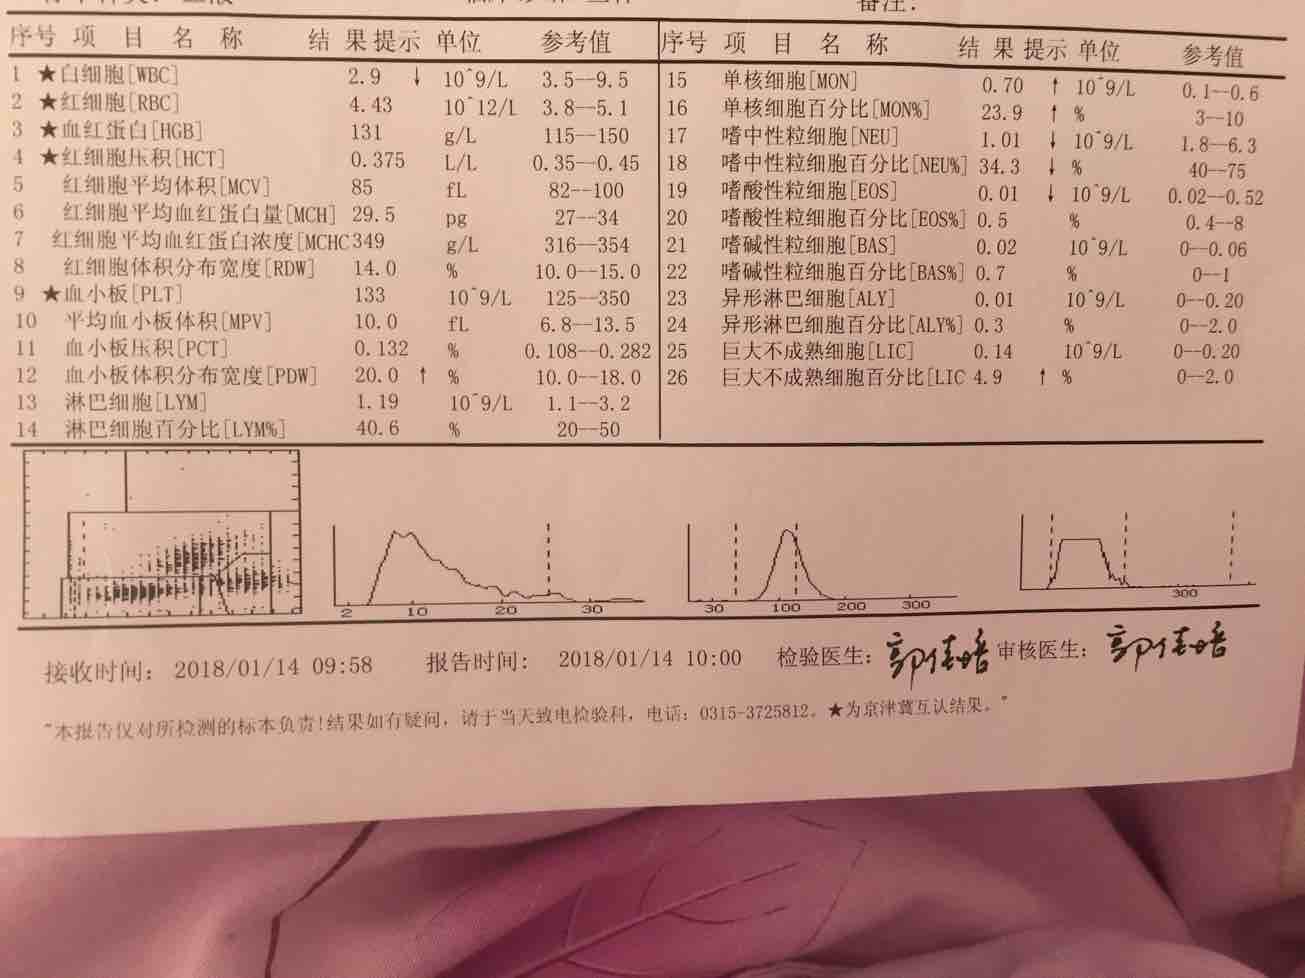 备注:
序号 项 目 名 称 结 果 提示 单位 参考值 序号 项 目 名 称 结 果 提示 单位 参考值
1 ★白细胞[WBC] 2.9 ↓ 10^9/L 3.5--9.5 15 单核细胞[MON] 0.70 ↑ 10^9/L 0.1--0.6
2 ★红细胞[RBC] 4.43 10^12/L 3.8--5.1 16 单核细胞百分比[MON%] 23.9 ↑ % 3--10
3 ★血红蛋白[HGB] 131 g/L 115--150 17 嗜中性粒细胞[NEU] 1.01 ↓ 10^9/L 1.8--6.3
4 ★红细胞压积[HCT] 0.375 L/L 0.35--0.45 18 嗜中性粒细胞百分比[NEU%] 34.3 ↓ % 40--75
5 红细胞平均体积[MCV] 85 fL 82--100 19 嗜酸性粒细胞[EOS] 0.01 ↓ 10^9/L 0.02--0.52
6 红细胞平均血红蛋白量[MCH] 29.5 pg 27--34 20 嗜酸性粒细胞百分比[EOS%] 0.5 % 0.4--8
7 红细胞平均血红蛋白浓度[MCHC 349 g/L 316--354 21 嗜碱性粒细胞[BAS] 0.02 10^9/L 0--0.06
8 红细胞体积分布宽度[RDW] 14.0 % 10.0--15.0 22 嗜碱性粒细胞百分比[BAS%] 0.7 % 0--1
9 ★血小板[PLT] 133 10^9/L 125--350 23 异形淋巴细胞[ALY] 0.01 10^9/L 0--0.20
10 平均血小板体积[MPV] 10.0 fL 6.8--13.5 24 异形淋巴细胞百分比[ALY%] 0.3 % 0--2.0
11 血小板压积[PCT] 0.132 % 0.108--0.282 25 巨大不成熟细胞[LIC] 0.14 10^9/L 0--0.20
12 血小板体积分布宽度[PDW] 20.0 ↑ % 10.0--18.0 26 巨大不成熟细胞百分比[LIC 4.9 ↑ % 0--2.0
13 淋巴细胞[LYM] 1.19 10^9/L 1.1--3.2
14 淋巴细胞百分比[LYM%] 40.6 % 20--50
2 10 20 30 30 100 200 300 300
接收时间: 2018/01/14 09:58 报告时间: 2018/01/14 10:00 检验医生: 审核医生:
"本报告仅对所检测的标本负责!结果如有疑问，请于当天致电检验科，电话：0315-3725812。★为京津冀互认结果。"